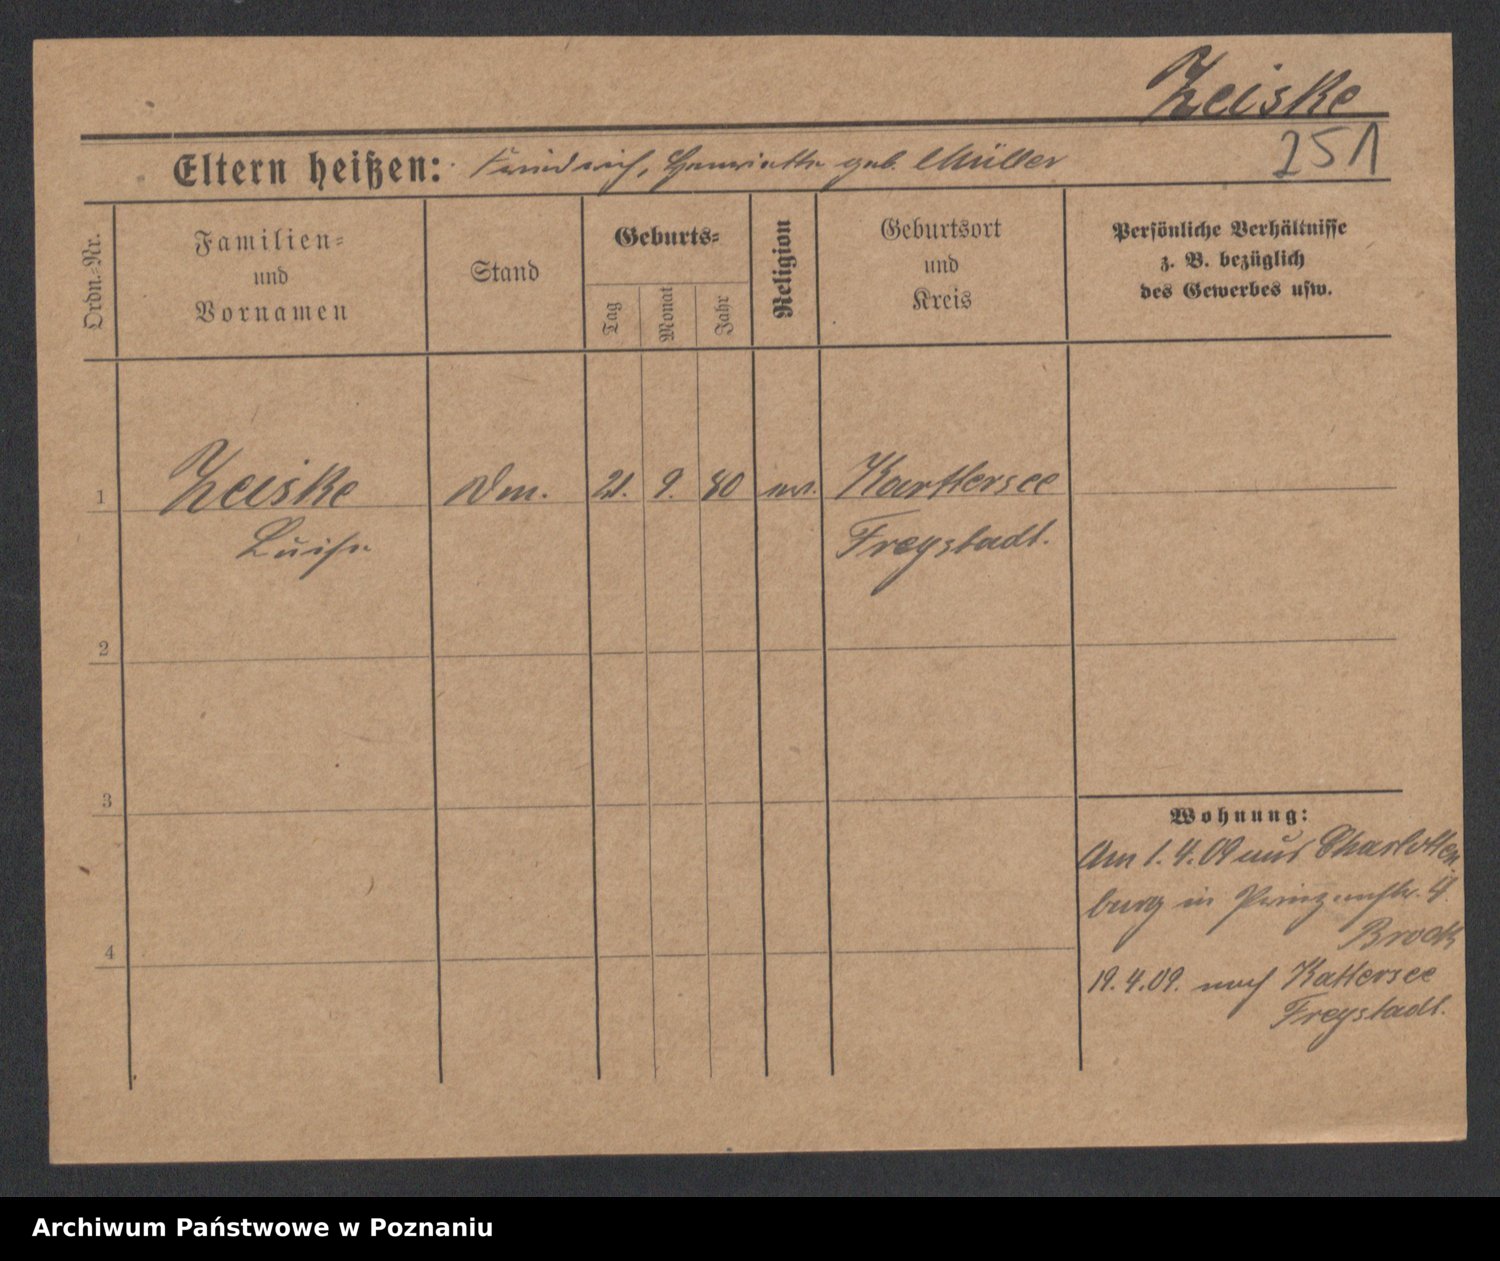 Zeiske
251
Eltern heißen: Friedrich, Henriette geb. Müller
Ordn.=Nr.
Familien=
und
Vornamen
Stand
Geburts=
Tag
Monat
Jahr
Religion
Geburtsort
und
Kreis
Persönliche Verhältnisse
z. B. bezüglich
des Gewerbes usw.
1 Zeiske 21. 9. 80
Luise Freystadt.
2
3
4
Wohnung:
Am 1.4.09 aus Charlotten
burg in Prinzenstr. 4.
Brock
19.4.09. nach Kattersee
Freystadt.
Archiwum Państwowe w Poznaniu